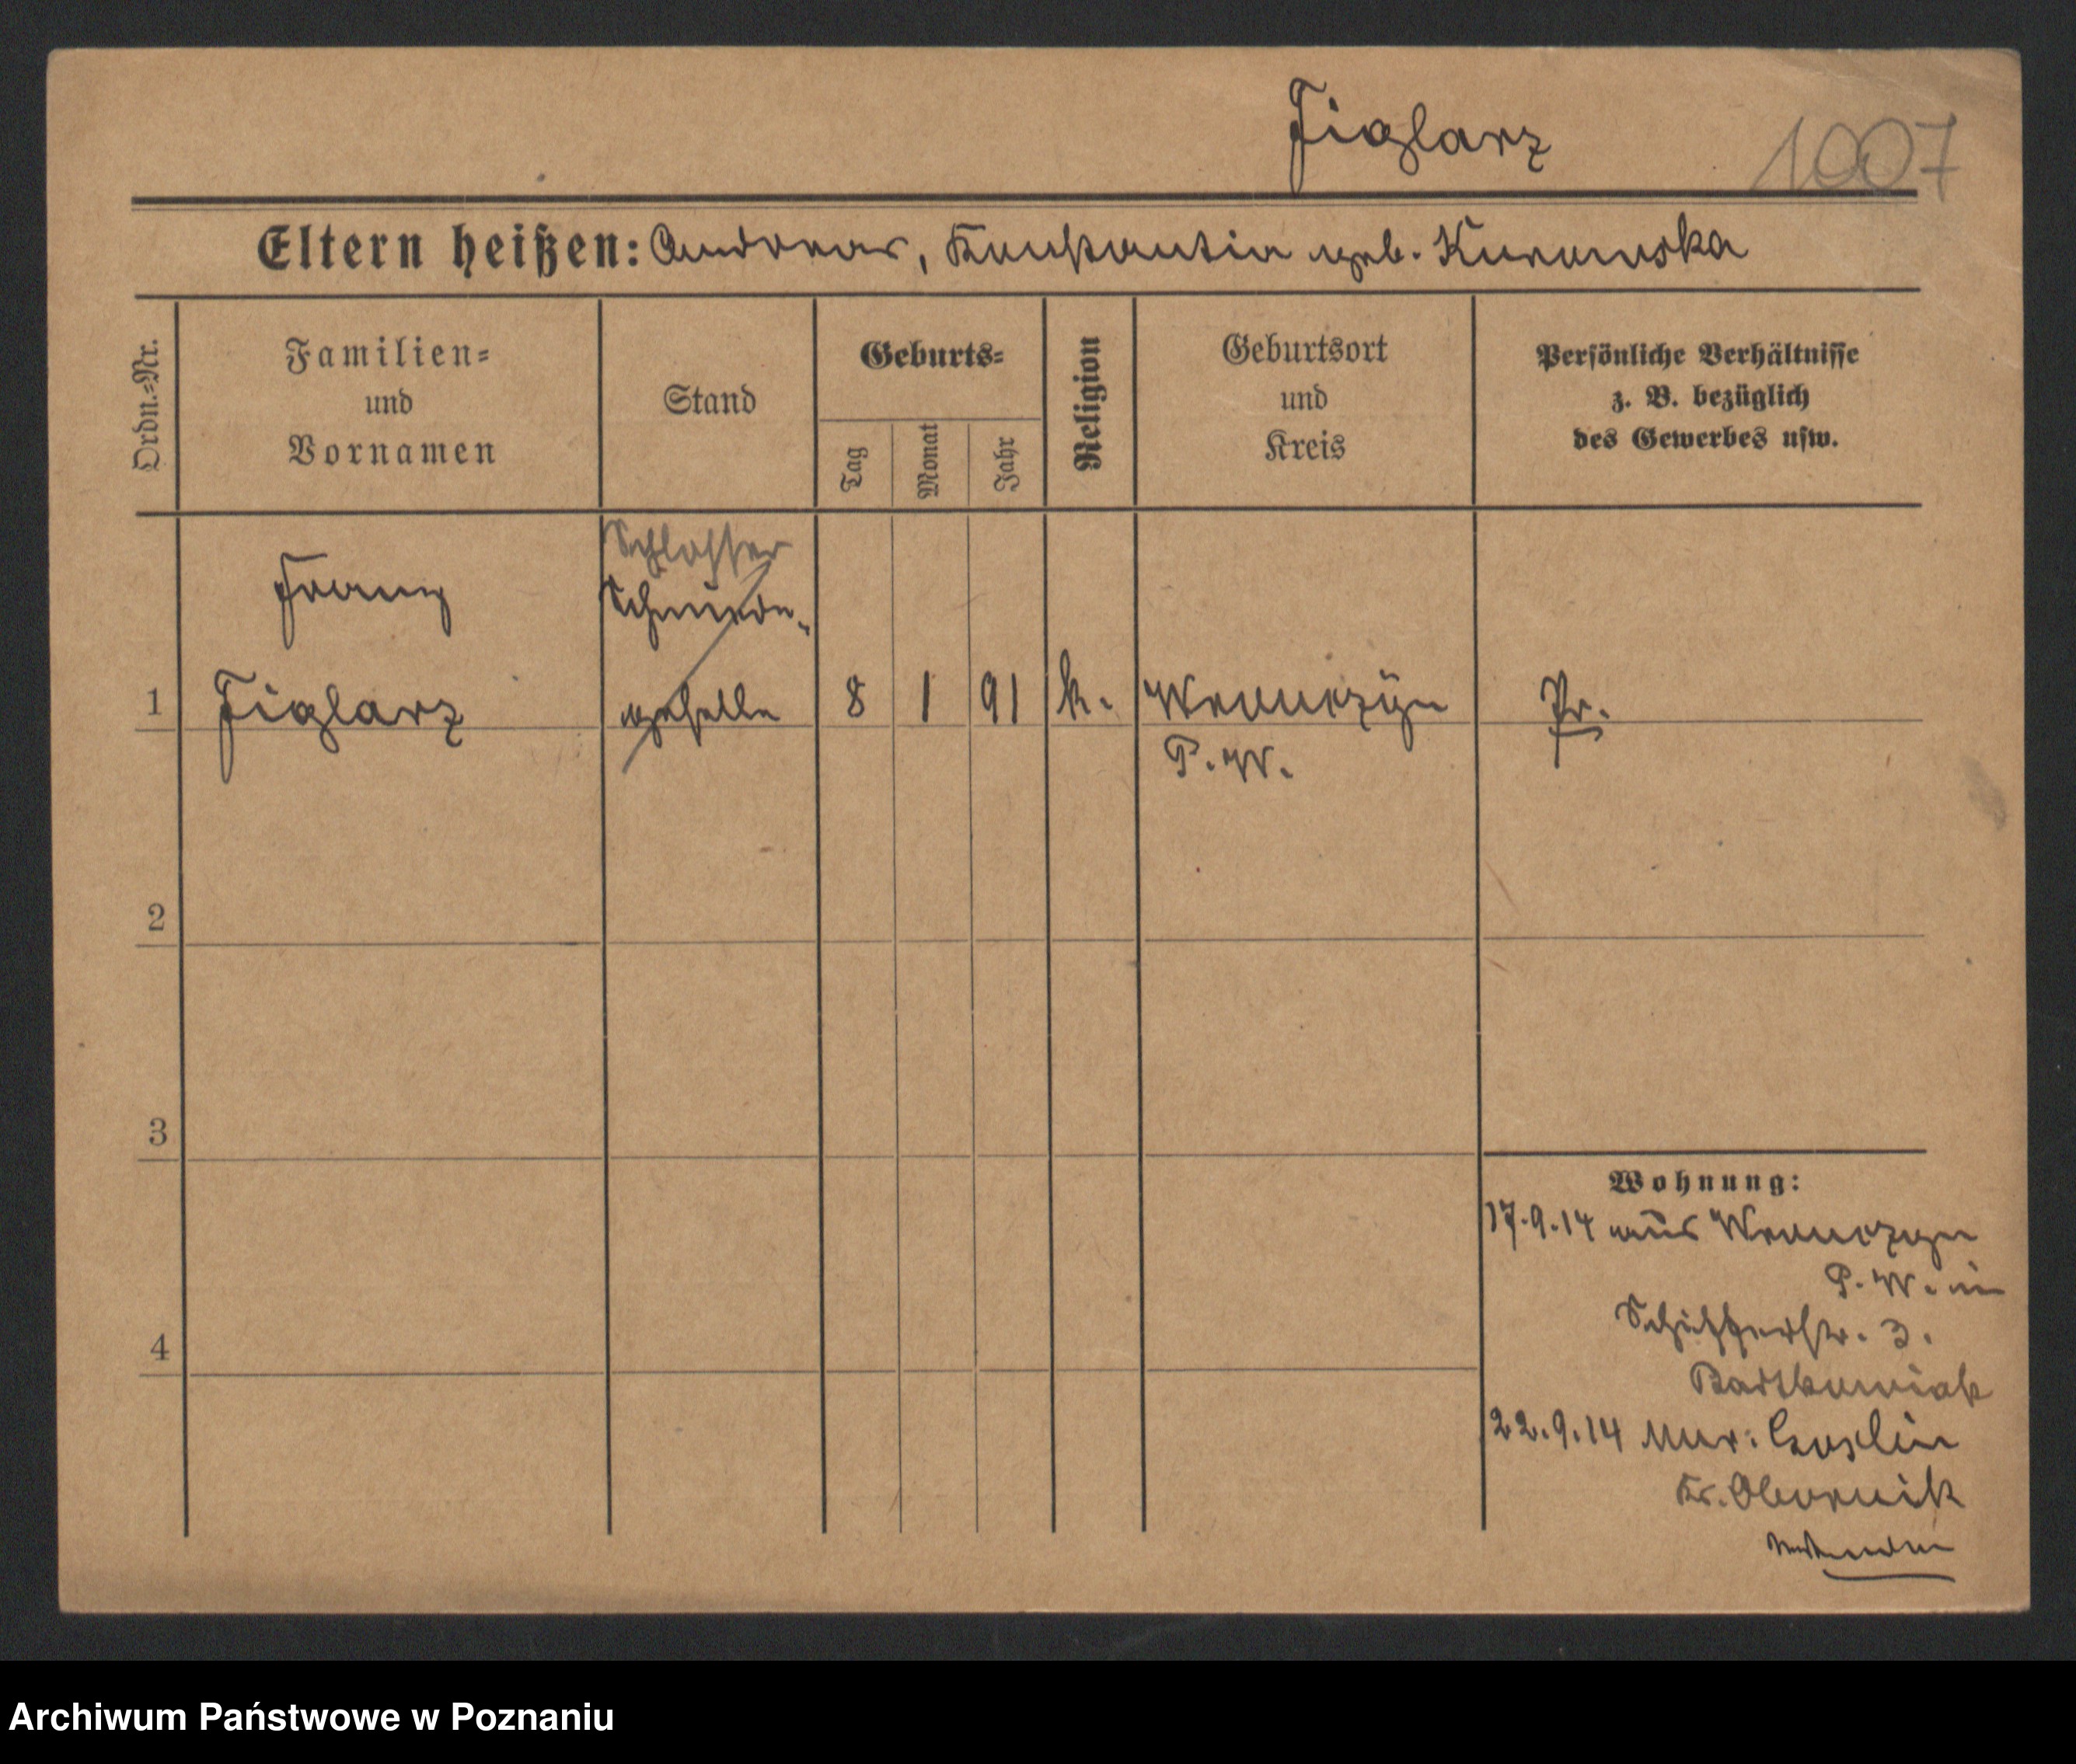 Figlarz 1007
Eltern heißen: Andreas, Konstantin geb. Kurowska
Ordn.=Nr.
Familien=
und
Vornamen
Stand
Geburts=
Tag
Monat
Jahr
Religion
Geburtsort
und
Kreis
Persönliche Verhältnisse
z. B. bezüglich
des Gewerbes usw.
Schlosser
Franz
1 Figlarz geselle 8 1 91 k. Wronczyn Pr.
P. W.
2
3
4
Wohnung:
17.9.14 aus Wronczyn
P. W. in
Schifferstr. 3.
Bartkowiak
22.9.14 Mur: Goslin
Kr. Obornik
Archiwum Państwowe w Poznaniu